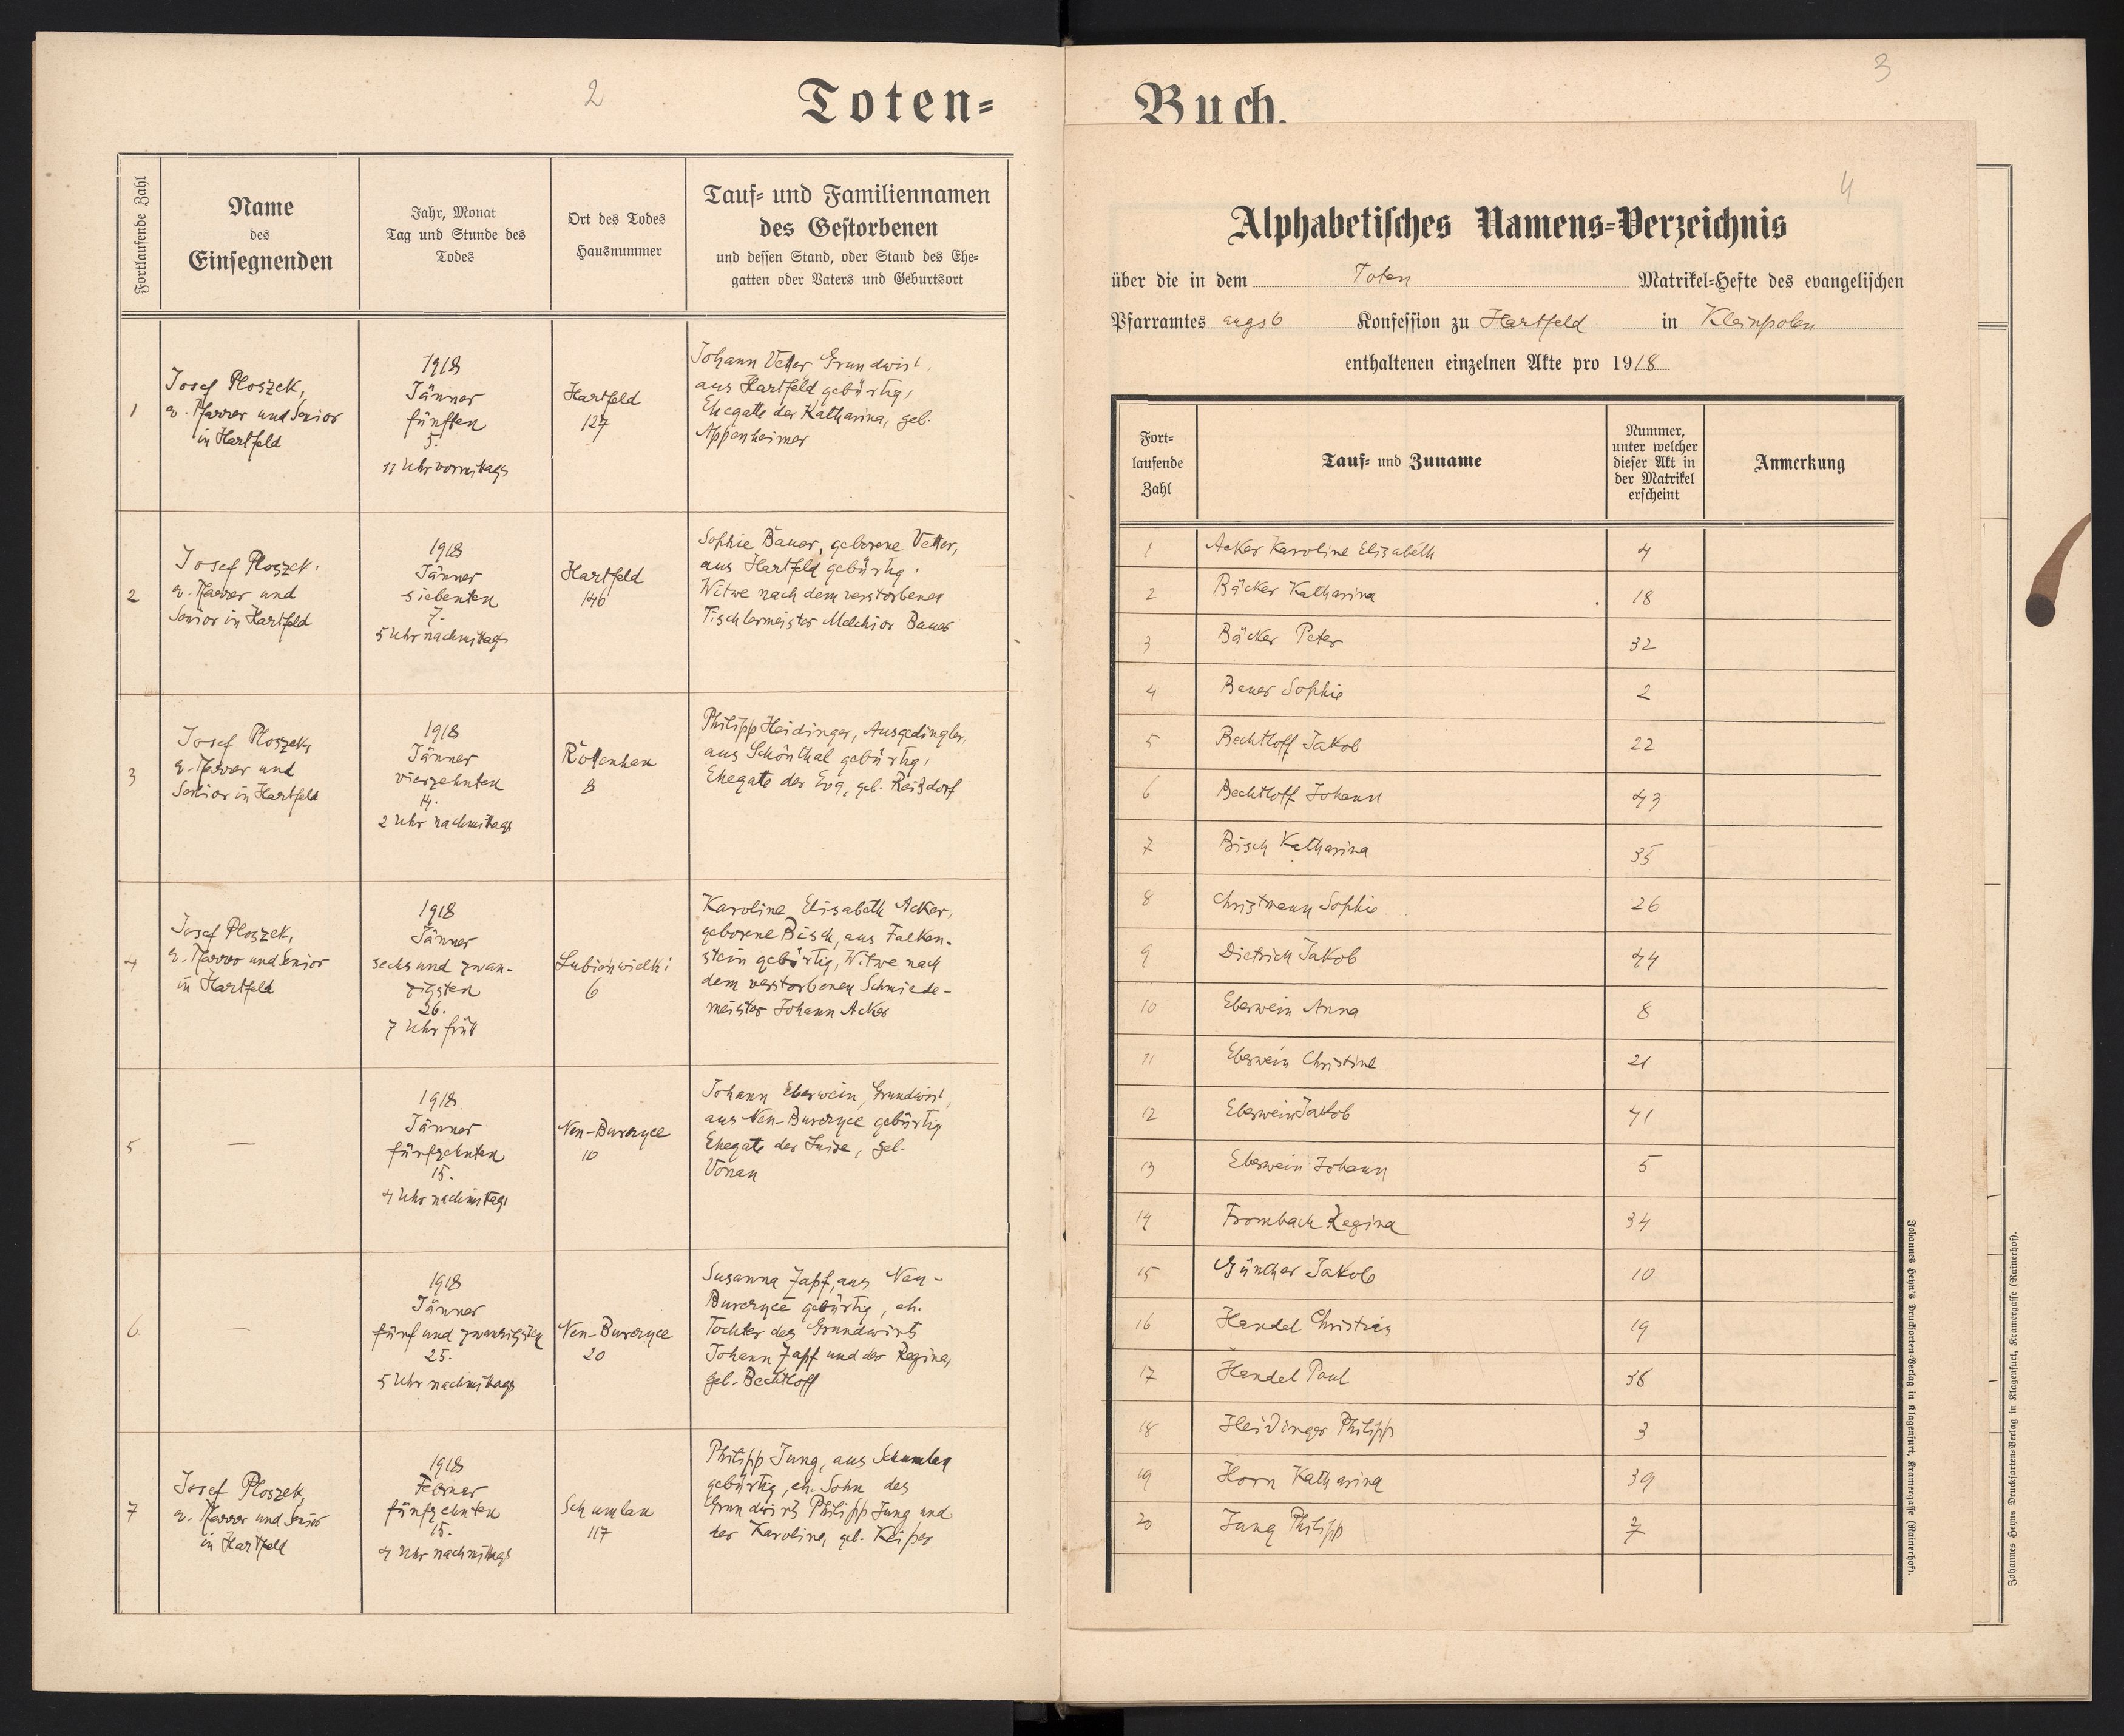 2
Toten-
Fortlaufende Zahl
Name
des
Einsegnenden
Jahr, Monat
Tag und Stunde des
Todes
Ort des Todes
Hausnummer
Tauf- und Familiennamen
des Gestorbenen
und dessen Stand, oder Stand des Ehe-
gatten oder Vaters und Geburtsort
1
Josef Ploszek,
ev. Pfarrer und Senior
in Hartfeld
1918
Jänner
fünften
5.
11 Uhr vormittags
Hartfeld
127
Johann Vetter, Grundwirt,
aus Hartfeld gebürtig,
Ehegatte der Katharina, geb.
Appenheimer
2
Josef Ploszek.
ev. Pfarrer und
Senior in Hartfeld
1918
Jänner
siebenten
7.
5 Uhr nachmittags
Hartfeld
146
Sophie Bauer, geborene Vetter,
aus Hartfeld gebürtig.
Witwe nach dem verstorbenen
Tischlermeister Melchior Bauer
3
Josef Ploszek,
ev. Pfarrer und
Senior in Hartfeld
1918
Jänner
vierzehnten
14.
2 Uhr nachmittags
Rottenhan
8
Philipp Heidinger, Ausgedingler,
aus Schönthal gebürtig,
Ehegatte der Eva, geb. Reisdorf
4
Josef Ploszek,
ev. Pfarrer und Senior
in Hartfeld
1918
Jänner
sechs und zwan-
zigsten
26.
7 Uhr früh
Lubień wielki
6
Karoline Elisabeth Acker,
geborene Bisch, aus Falken-
stein gebürtig, Witwe nach
dem verstorbenen Schmiede-
meister Johann Acker
5
—
1918
Jänner
fünfzehnten
15.
4 Uhr nachmittags
Neu-Burczyce
10
Johann Eberwein, Grundwirt,
aus Neu-Burczyce gebürtig
Ehegatte der Luise, geb.
Vonau
6
—
1918
Jänner
fünf und zwanzigsten
25.
5 Uhr nachmittags
Neu-Burczyce
20
Susanna Zapf, aus Neu-
Burczyce gebürtig, eh.
Tochter des Grundwirts
Johann Zapf und der Regina,
geb. Bechtloff
7
Josef Ploszek,
ev. Pfarrer und Senior
in Hartfeld
1918
Februar
fünfzehnten
15.
4 Uhr nachmittags
Schumlau
117
Philipp Jung, aus Schumlau
gebürtig, eh. Sohn des
Grundwirts Philipp Jung und
der Karoline, geb. Keiper
3
Buch.
4
Alphabetisches Namens-Verzeichnis
über die in dem Toten Matrikel-Hefte des evangelischen
Pfarramtes augsb Konfession zu Hartfeld in Kleinpolen
enthaltenen einzelnen Akte pro 1918
Fort-
laufende
Zahl
Tauf- und Zuname
Nummer,
unter welcher
dieser Akt in
der Matrikel
erscheint
Anmerkung
1 Acker Karoline Elisabeth 4
2 Bäcker Katharina 18
3 Bäcker Peter 32
4 Bauer Sophie 2
5 Bechtloff Jakob 22
6 Bechtloff Johann 43
7 Bisch Katharina 35
8 Christmann Sophie 26
9 Dietrich Jakob 44
10 Eberwein Anna 8
11 Eberwein Christine 21
12 Eberwein Jakob 41
13 Eberwein Johann 5
14 Frombach Regina 34
15 Günther Jakob 10
16 Handel Christian 19
17 Handel Paul 36
18 Heidinger Philipp 3
19 Horn Katharina 39
20 Jung Philipp 7
Johannes Heyn's Drucksorten-Verlag in Klagenfurt, Kramergasse (Rainerhof).
Johannes Heyns Drucksorten-Verlag in Klagenfurt, Kramergasse (Rainerhof).